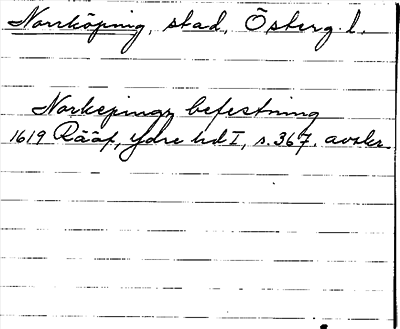 Norrköping, stad, Österg. l.
Norkepings befestning
1619 Rääf, Ydre hd I, s. 367. avskr.